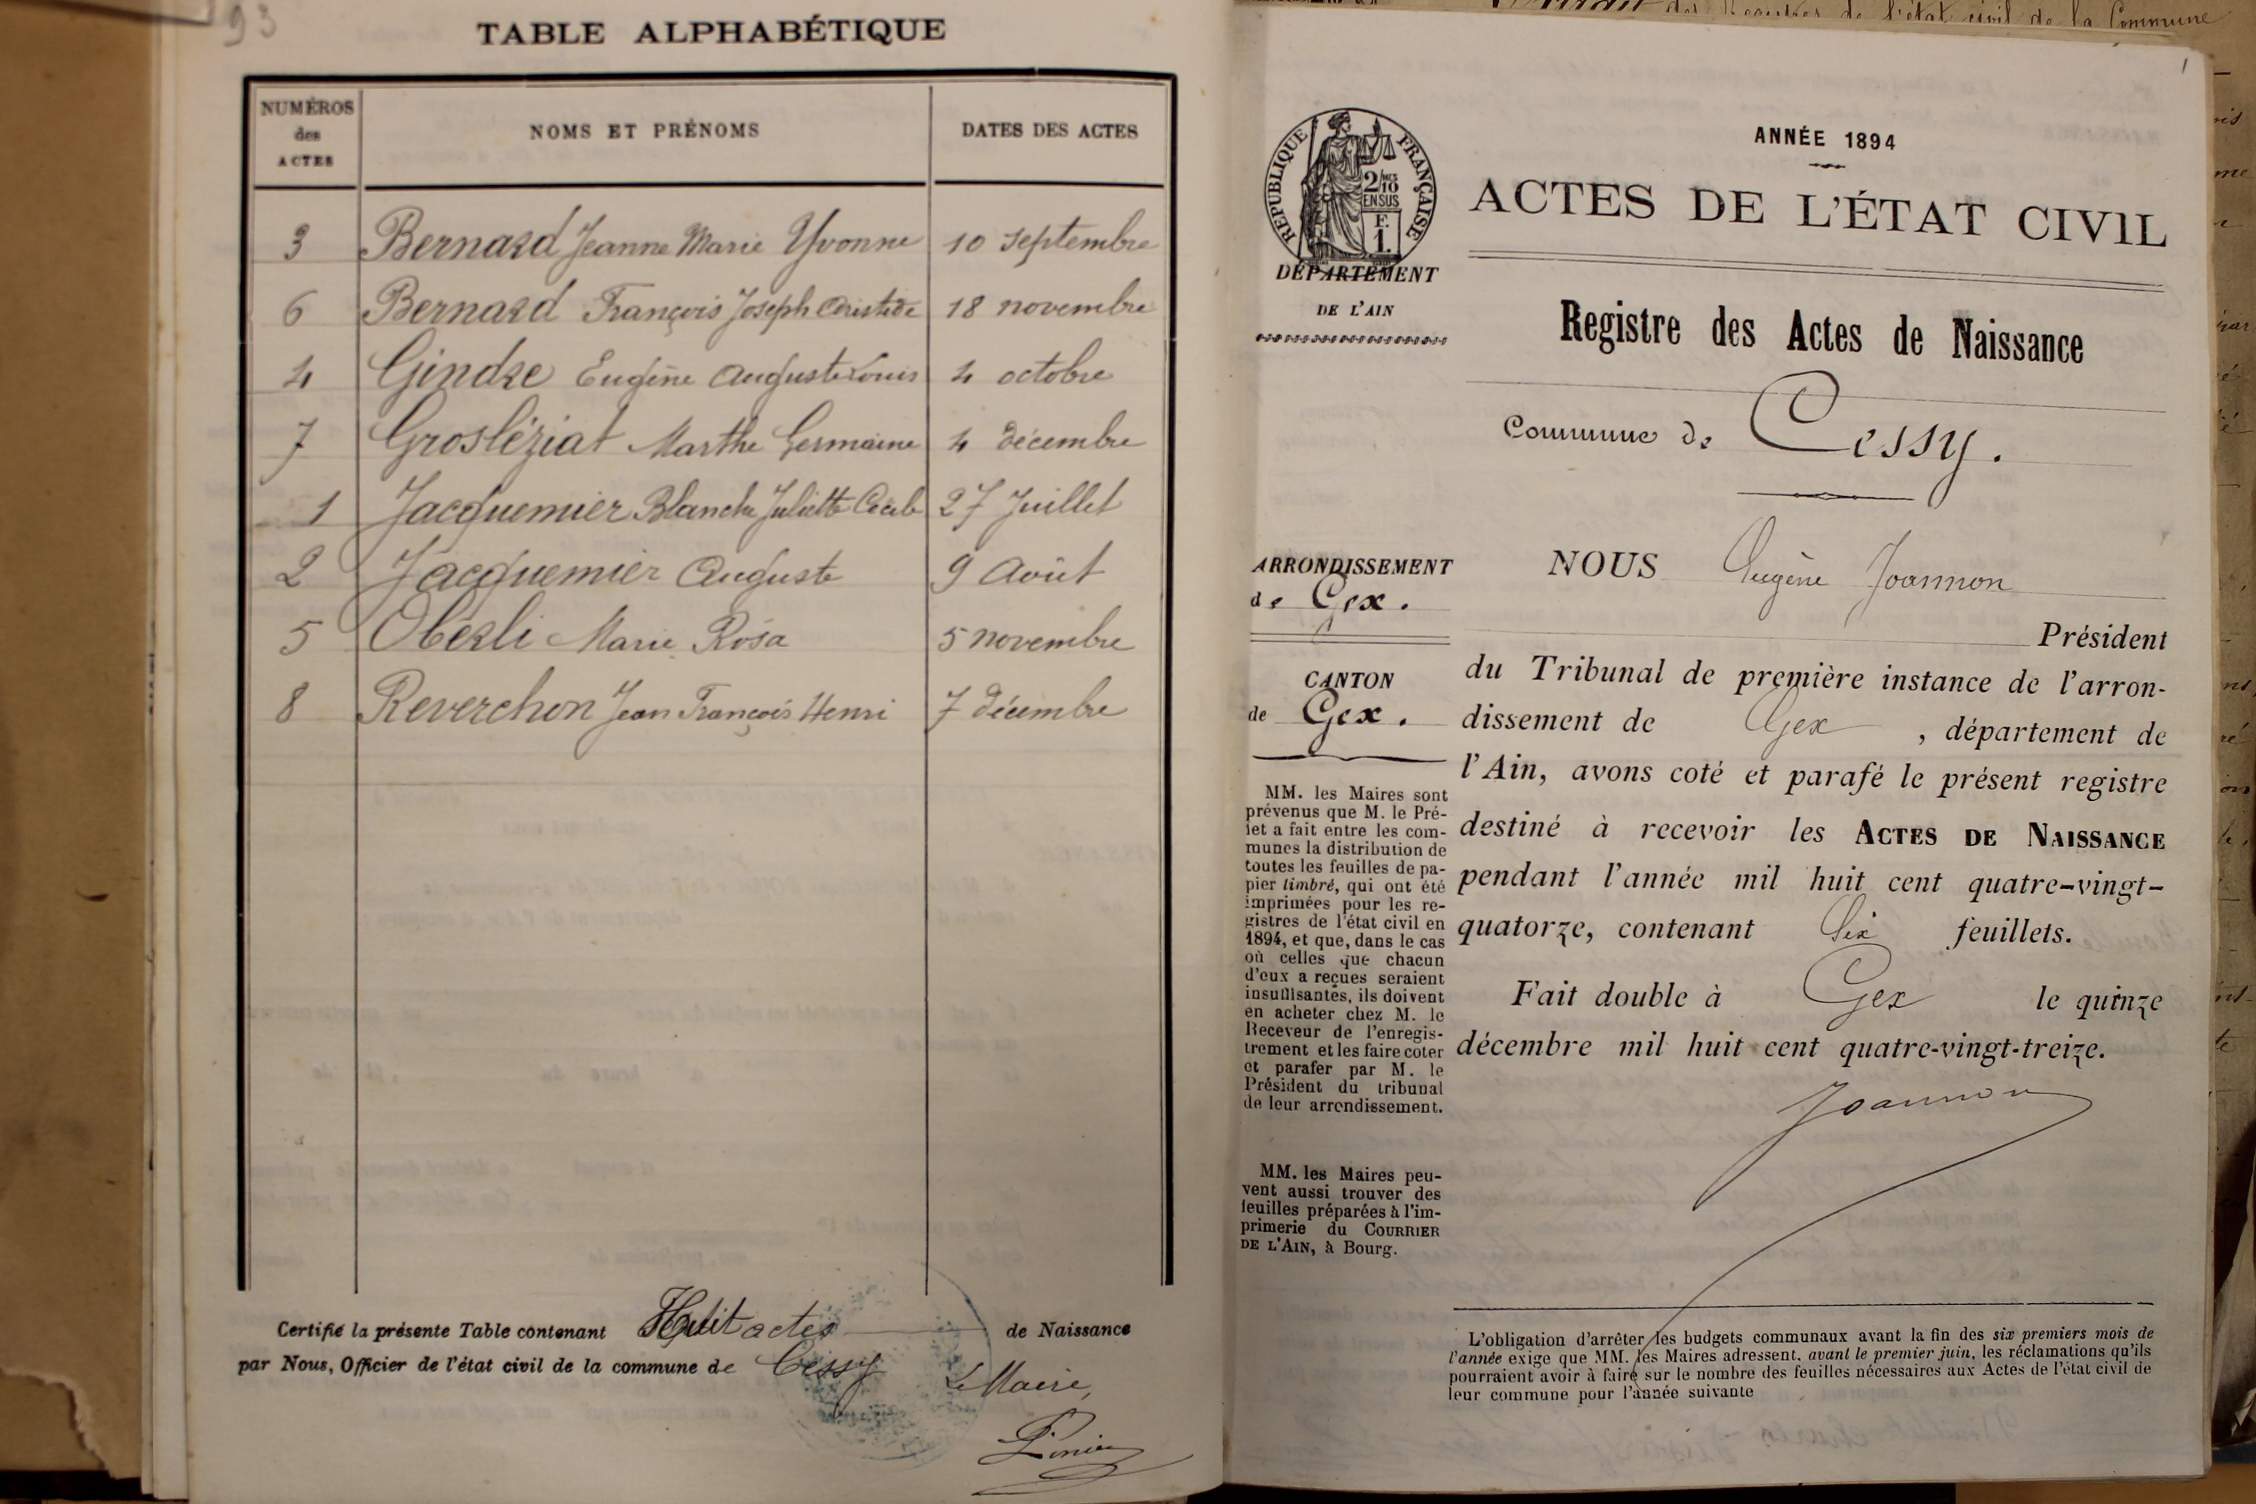 93
TABLE ALPHABÉTIQUE
NUMÉROS
des
ACTES
NOMS ET PRÉNOMS
DATES DES ACTES
3 Bernard Jeanne Marie Yvonne 10 septembre
6 Bernard François Joseph Aristide 18 novembre
4 Gindre Eugène Auguste Louis 4 octobre
7 Grosléziat Marthe Germaine 4 décembre
1 Jacquemier Blanche Juliette Cécile 27 Juillet
2 Jacquemier Auguste 9 Août
5 Oberli Marie Rosa 5 novembre
8 Reverchon Jean François Henri 7 décembre
Certifié la présente Table contenant Huit actes de Naissance
par Nous, Officier de l'état civil de la commune de Cessy
Le Maire,
des Registres de l'état civil de la Commune
1
RÉPUBLIQUE FRANÇAISE
2/10
EN SUS
F.
1.
DÉPARTEMENT
DE L'AIN
ANNÉE 1894
ACTES DE L'ÉTAT CIVIL
Registre des Actes de Naissance
Commune de Cessy.
ARRONDISSEMENT
de Gex.
CANTON
de Gex.
MM. les Maires sont
prévenus que M. le Pré-
fet a fait entre les com-
munes la distribution de
toutes les feuilles de pa-
pier timbré, qui ont été
imprimées pour les re-
gistres de l'état civil en
1894, et que, dans le cas
où celles que chacun
d'eux a reçues seraient
insuffisantes, ils doivent
en acheter chez M. le
Receveur de l'enregis-
trement et les faire coter
et parafer par M. le
Président du tribunal
de leur arrondissement.
MM. les Maires peu-
vent aussi trouver des
feuilles préparées à l'im-
primerie du COURRIER
DE L'AIN, à Bourg.
NOUS Eugène Joannon
Président
du Tribunal de première instance de l'arron-
dissement de Gex, département de
l'Ain, avons coté et parafé le présent registre
destiné à recevoir les ACTES DE NAISSANCE
pendant l'année mil huit cent quatre-vingt-
quatorze, contenant Six feuillets.
Fait double à Gex le quinze
décembre mil huit cent quatre-vingt-treize.
Joannon
L'obligation d'arrêter les budgets communaux avant la fin des six premiers mois de
l'année exige que MM. les Maires adressent, avant le premier juin, les réclamations qu'ils
pourraient avoir à faire sur le nombre des feuilles nécessaires aux Actes de l'état civil de
leur commune pour l'année suivante